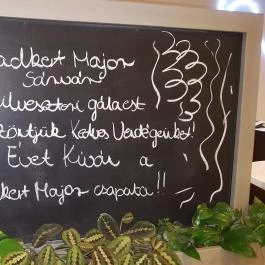 adkert Major
Sárvár
ilveszteri gálaest
zöntjük Kedves Vendégeinket!
Évet Kíván a
kert Major csapata!!